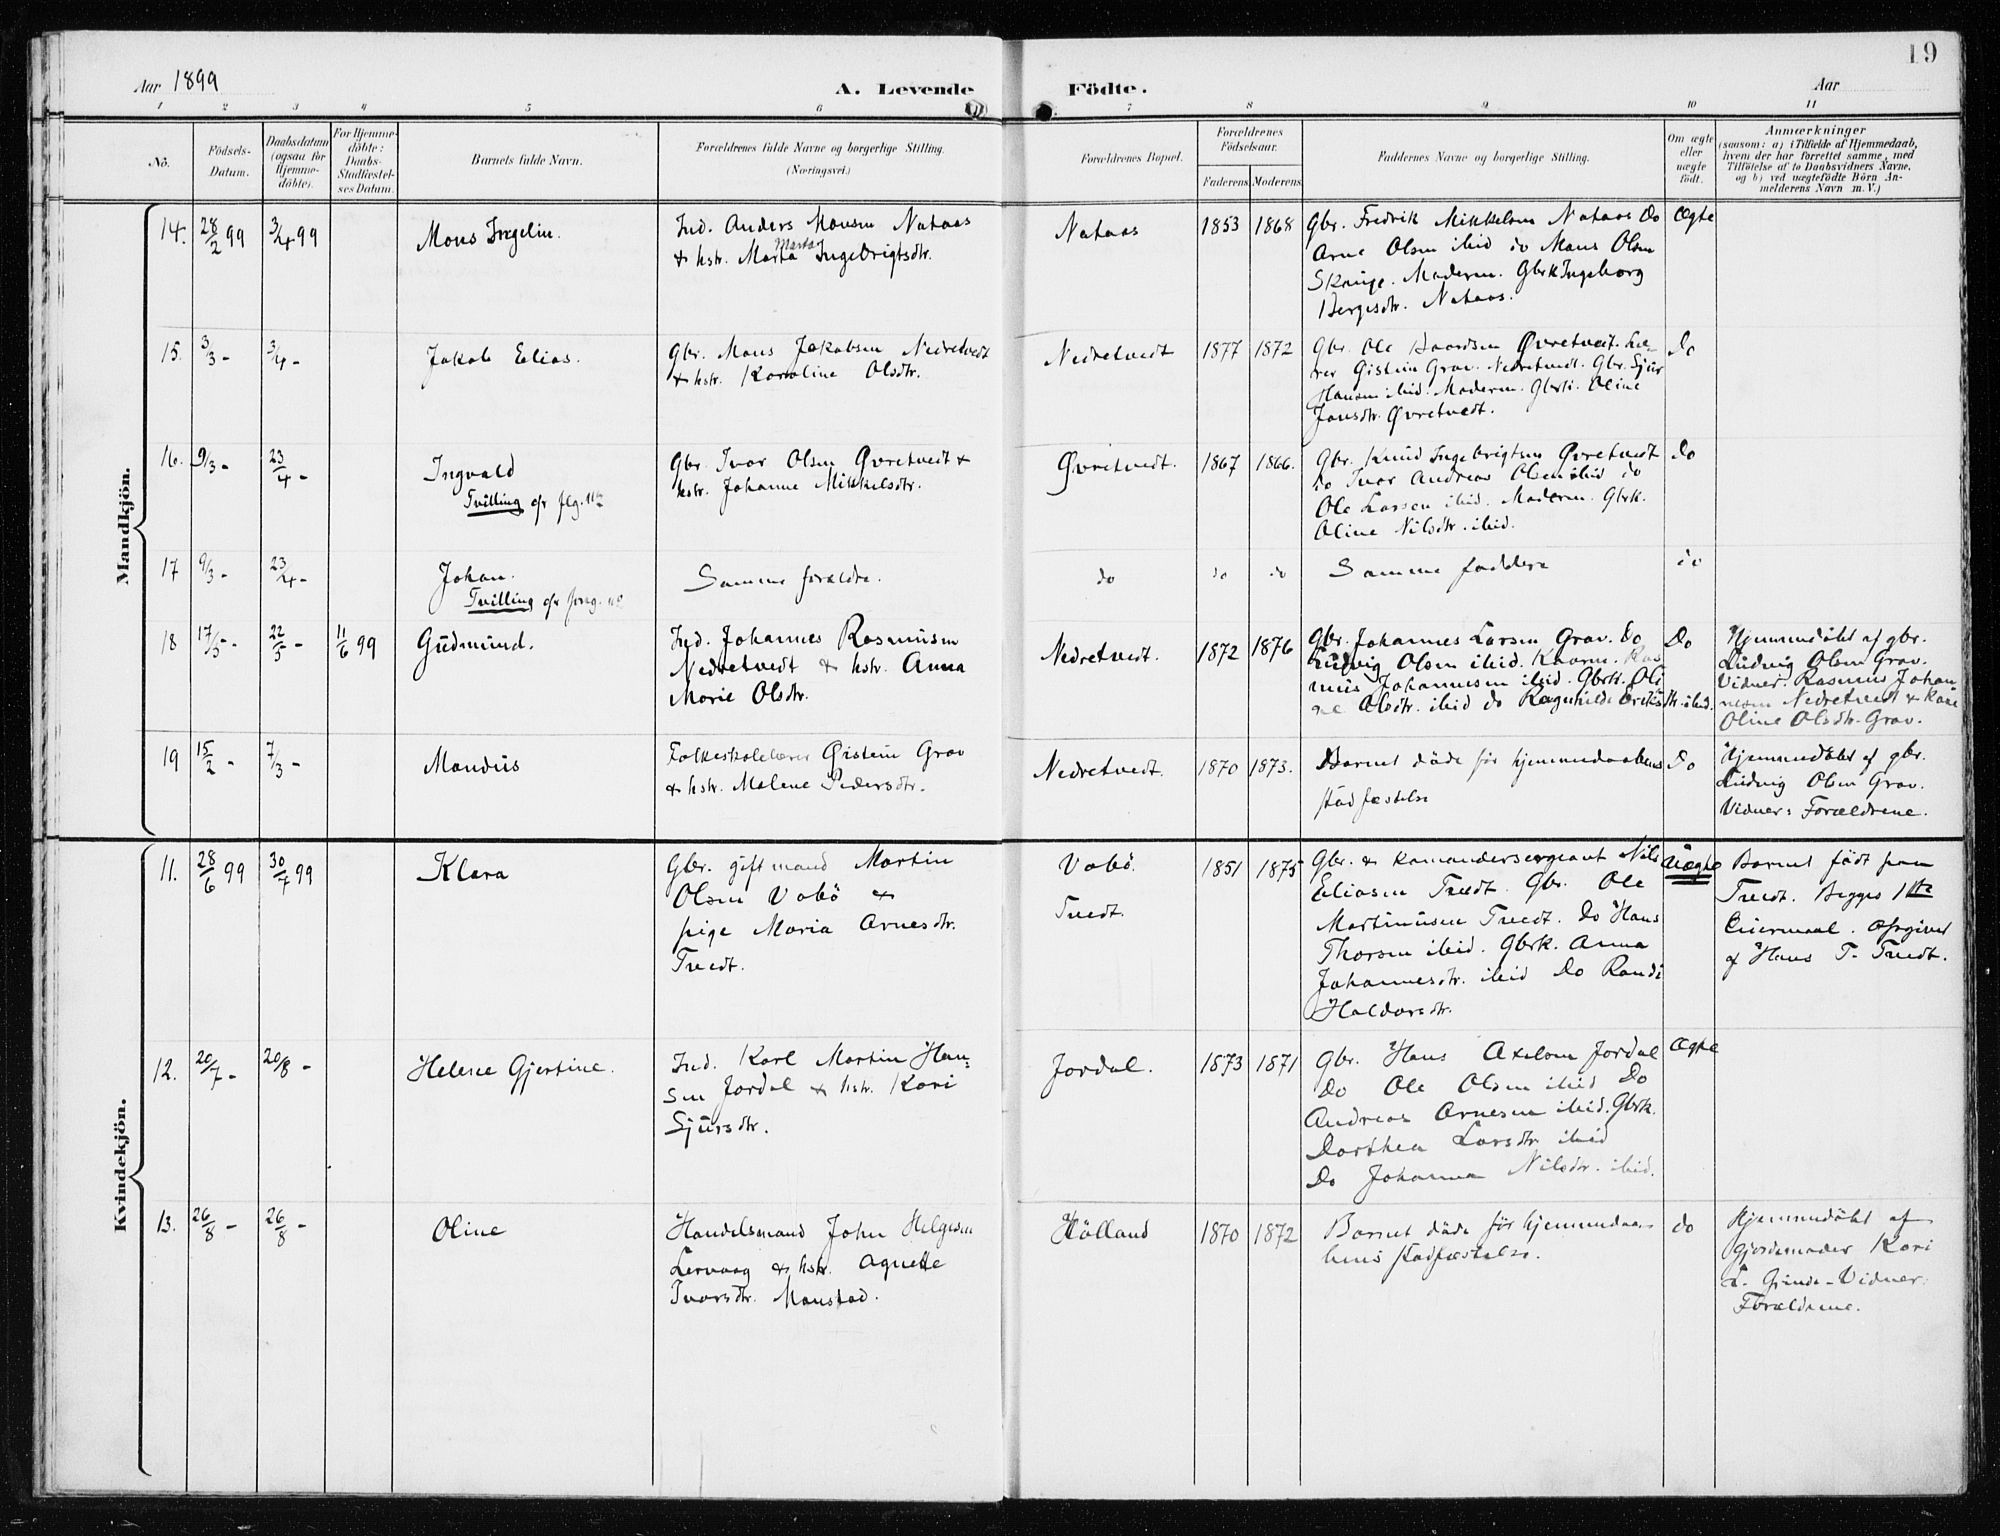 19
Aar 1899
A. Levende Födte.
Aar
1 2 3 4 5 6 7 8 9 10 11
Nö.
Födsels-
Datum.
Daabsdatum
(ogsaa for
Hjemme-
döbte).
For Hjemme-
döbte:
Daabs-
Stadfæstel-
ses Datum.
Barnets fulde Navn.
Forældrenes fulde Navne og borgerlige Stilling.
(Næringsvei.)
Forældrenes Bopæl.
Forældrenes
Födselsaar.
Faderens. Moderens.
Faddernes Navne og borgerlige Stilling.
Om ægte
eller
uægte
födt.
Anmærkninger
(saasom: a) i Tilfælde af Hjemmedaab,
hvem der har forrettet samme, med
Tilföielse af to Daabsvidners Navne,
og b) ved uægtefödte Börn An-
melderens Navn m. V.)
Mandkjön.
14. 28/2 99 3/4 99
Mons Ingelin.
Ind. Anders Monsen Nataas
& hstr. Marta Ingebrigtsdtr.
Marta
Nataas
1853 1868
Gbr. Fredrik Mikkelsen Nataas Do
Arne Olsen ibid do Mons Olsen
Skauge. Moderen. Gbrk Ingeborg
Bergesdtr. Nataas.
Ægte
15. 3/3 - 3/4 -
Jakob Elias.
Gbr. Mons Jakobsen Nedretvedt
& hstr. Karoline Olsdtr.
Nedretvedt
1877 1872
Gbr. Ole Baardsen Øvretvedt. Læ-
rer Øistein Grav. Nedretvedt. Gbr. Sjur
Hansen ibid. Moderen. Gbrk. Oline
Jonsdtr. Øvretvedt.
Do
16. 9/3 - 23/4 -
Ingvald
Tvilling cfr flg. №
Gbr. Ivar Olsen Øvretvedt &
hstr. Johanne Mikkelsdtr.
Øvretvedt.
1867 1866.
Gbr. Knud Ingebrigtsen Øvretvedt
do Ivar Andreas Olsen ibid do
Ole Larsen ibid. Moderen. Gbrk.
Oline Nilsdtr. ibid.
Do
17 9/3 - 23/4 -
Johan.
Tvilling cfr forrg. №
Samme forældre.
do do do
Samme faddere
do
18 17/5 - 22/5 - 11/6 99
Gudmund.
Ind. Johannes Rasmusen
Nedretvedt & hstr. Anna
Marie Olsdtr.
Nedretvedt.
1872 1876
Gbr. Johannes Larsen Grav. Do
Ludvig Olsen ibid. Kaarm. Ras-
mus Johannesen ibid. Gbrk. Oli
ne Olsdtr. ibid do Ragnhilde Eriksdtr. ibid.
Do
Hjemmedöbt af gbr.
Ludvig Olsen Grav.
Vidner. Rasmus Johan-
nesen Nedretvedt & kone
Oline Olsdtr. Grav.
19 15/2 - 7/3 -
Mandus
Folkeskolelærer Øistein Grav
& hstr. Malene Pedersdtr.
Nedretvedt.
1870 1873.
Barnet döde för hjemmedaabens
stadfæstelse
Do
Hjemmedöbt af gbr.
Ludvig Olsen Grav.
Vidner: Forældrene.
Kvindekjön.
11. 28/6 99 30/7 99
Klara
Gbr. gift mand Martin
Olsen Vabö &
pige Maria Arnesdtr.
Tvedt.
Vabö.
Tvedt.
1851 1875
Gbr. & komandersergeant Nils
Eliasen Tvedt. Gbr. Ole
Martinusen Tvedt. Do Hans
Thorsen ibid. Gbrk. Anna
Johannesdtr. ibid Do Randi
Haldorsdtr.
Uægte
Barnet födt paa
Tvedt. Begges 1ste
Leiermaal. Opgivet
af Hans T. Tvedt.
12. 20/7 - 20/8 -
Helene Gjertine.
Ind. Karl Martin Han-
sen Jordal & hstr. Kari
Sjursdtr.
Jordal.
1873 1871
Gbr. Hans Axelsen Jordal
Do Ole Olsen ibid Do
Andreas Arnesen ibid. Gbrk.
Dorthea Larsdtr ibid
Do Johanna Nilsdtr. ibid.
Ægte
13. 26/8 - 26/8 -
Oline
Handelsmand John Helgesen
Lervaag & hstr. Agnette
Ivarsdtr. Monstad.
Hölland
1870 1872
Barnet döde för hjemmedaa-
bens stadfæstelse.
do
Hjemmedöbt af
gjordemoder Kari
L. Grinde - Vidner:
Forældrene.